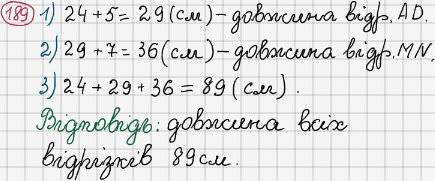 189 1) 24 + 5 = 29 (см) - довжина відр. AD.
2) 29 + 7 = 36 (см) - довжина відр. MN.
3) 24 + 29 + 36 = 89 (см).
Відповідь: довжина всіх
відрізків 89 см.